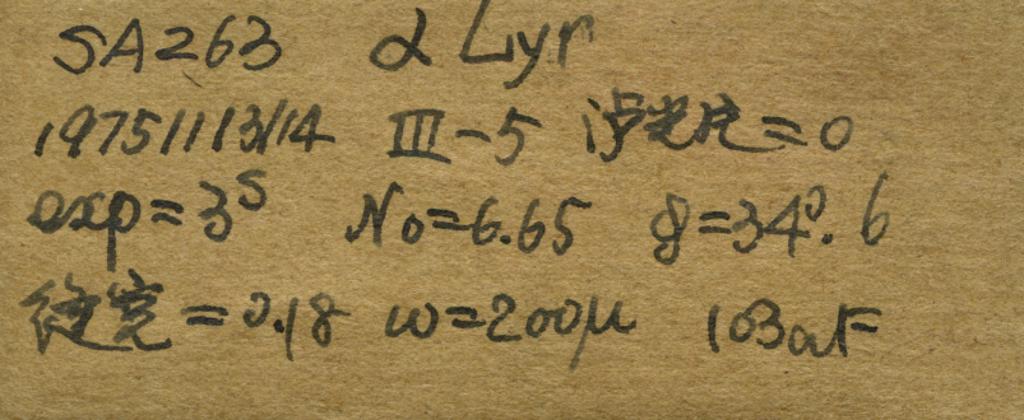 SA263 α Lyr
19751113/14 III-5 滤光片=0
exp=3ˢ No=6.65 g=34°.6
缝宽=0.18 w=200μ 103aF